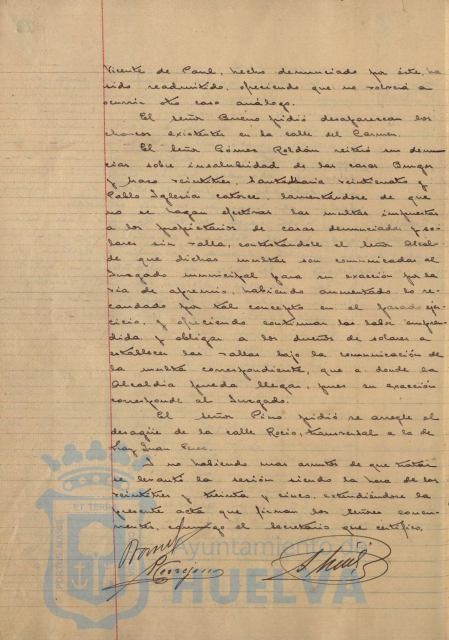 Vicente de Paul, hecho denunciado por éste, ha
sido readmitido, ofreciendo que no volverá a
ocurrir otro caso análogo.
El señor Bueno pidió desaparezcan los
charcos existentes en la calle del Carmen.
El señor Gómez Roldán reitera su denun-
cias sobre insalubridad de las casas Burgos
y Mazo veintisiete, Santa María veinticuatro y
Pablo Iglesias catorce, lamentándose de que
no se hagan efectivas las multas impuestas
a los propietarios de casas denunciadas y so-
lares sin valla, contestándole el señor Alcal-
de que dichas multas son comunicadas al
Juzgado municipal para su exacción por la
vía de apremio, habiendo aumentado lo re-
caudado por tal concepto en el pasado eje-
cicio, y ofreciendo continuar la labor empren-
dida y obligar a los dueños de solares a
establecer las vallas bajo la comunicación de
la multa correspondiente, que a donde la
Alcaldía pueda llegar, pues su exacción
corresponde al Juzgado.
El señor Pino pidió se arregle el
desagüe de la calle Rocío, transversal a la de
Fray Juan Perez.
Y no habiendo mas asuntos de que tratar
se levantó la sesión siendo la hora de las
veintitres y treinta y cinco, extendiéndose la
presente acta que firman los señores concu-
rrentes, conmigo el Secretario que certifico.
Ayuntamiento de
HUELVA